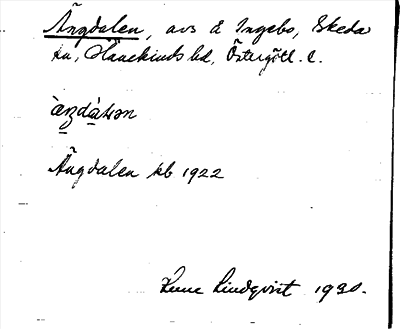 Ängdalen, avs å Ingebo, Eskeda
sn, Hanekinds hd, Östergötl. l.
Ängdalen kb 1922
Rune Lindqvist 1930.